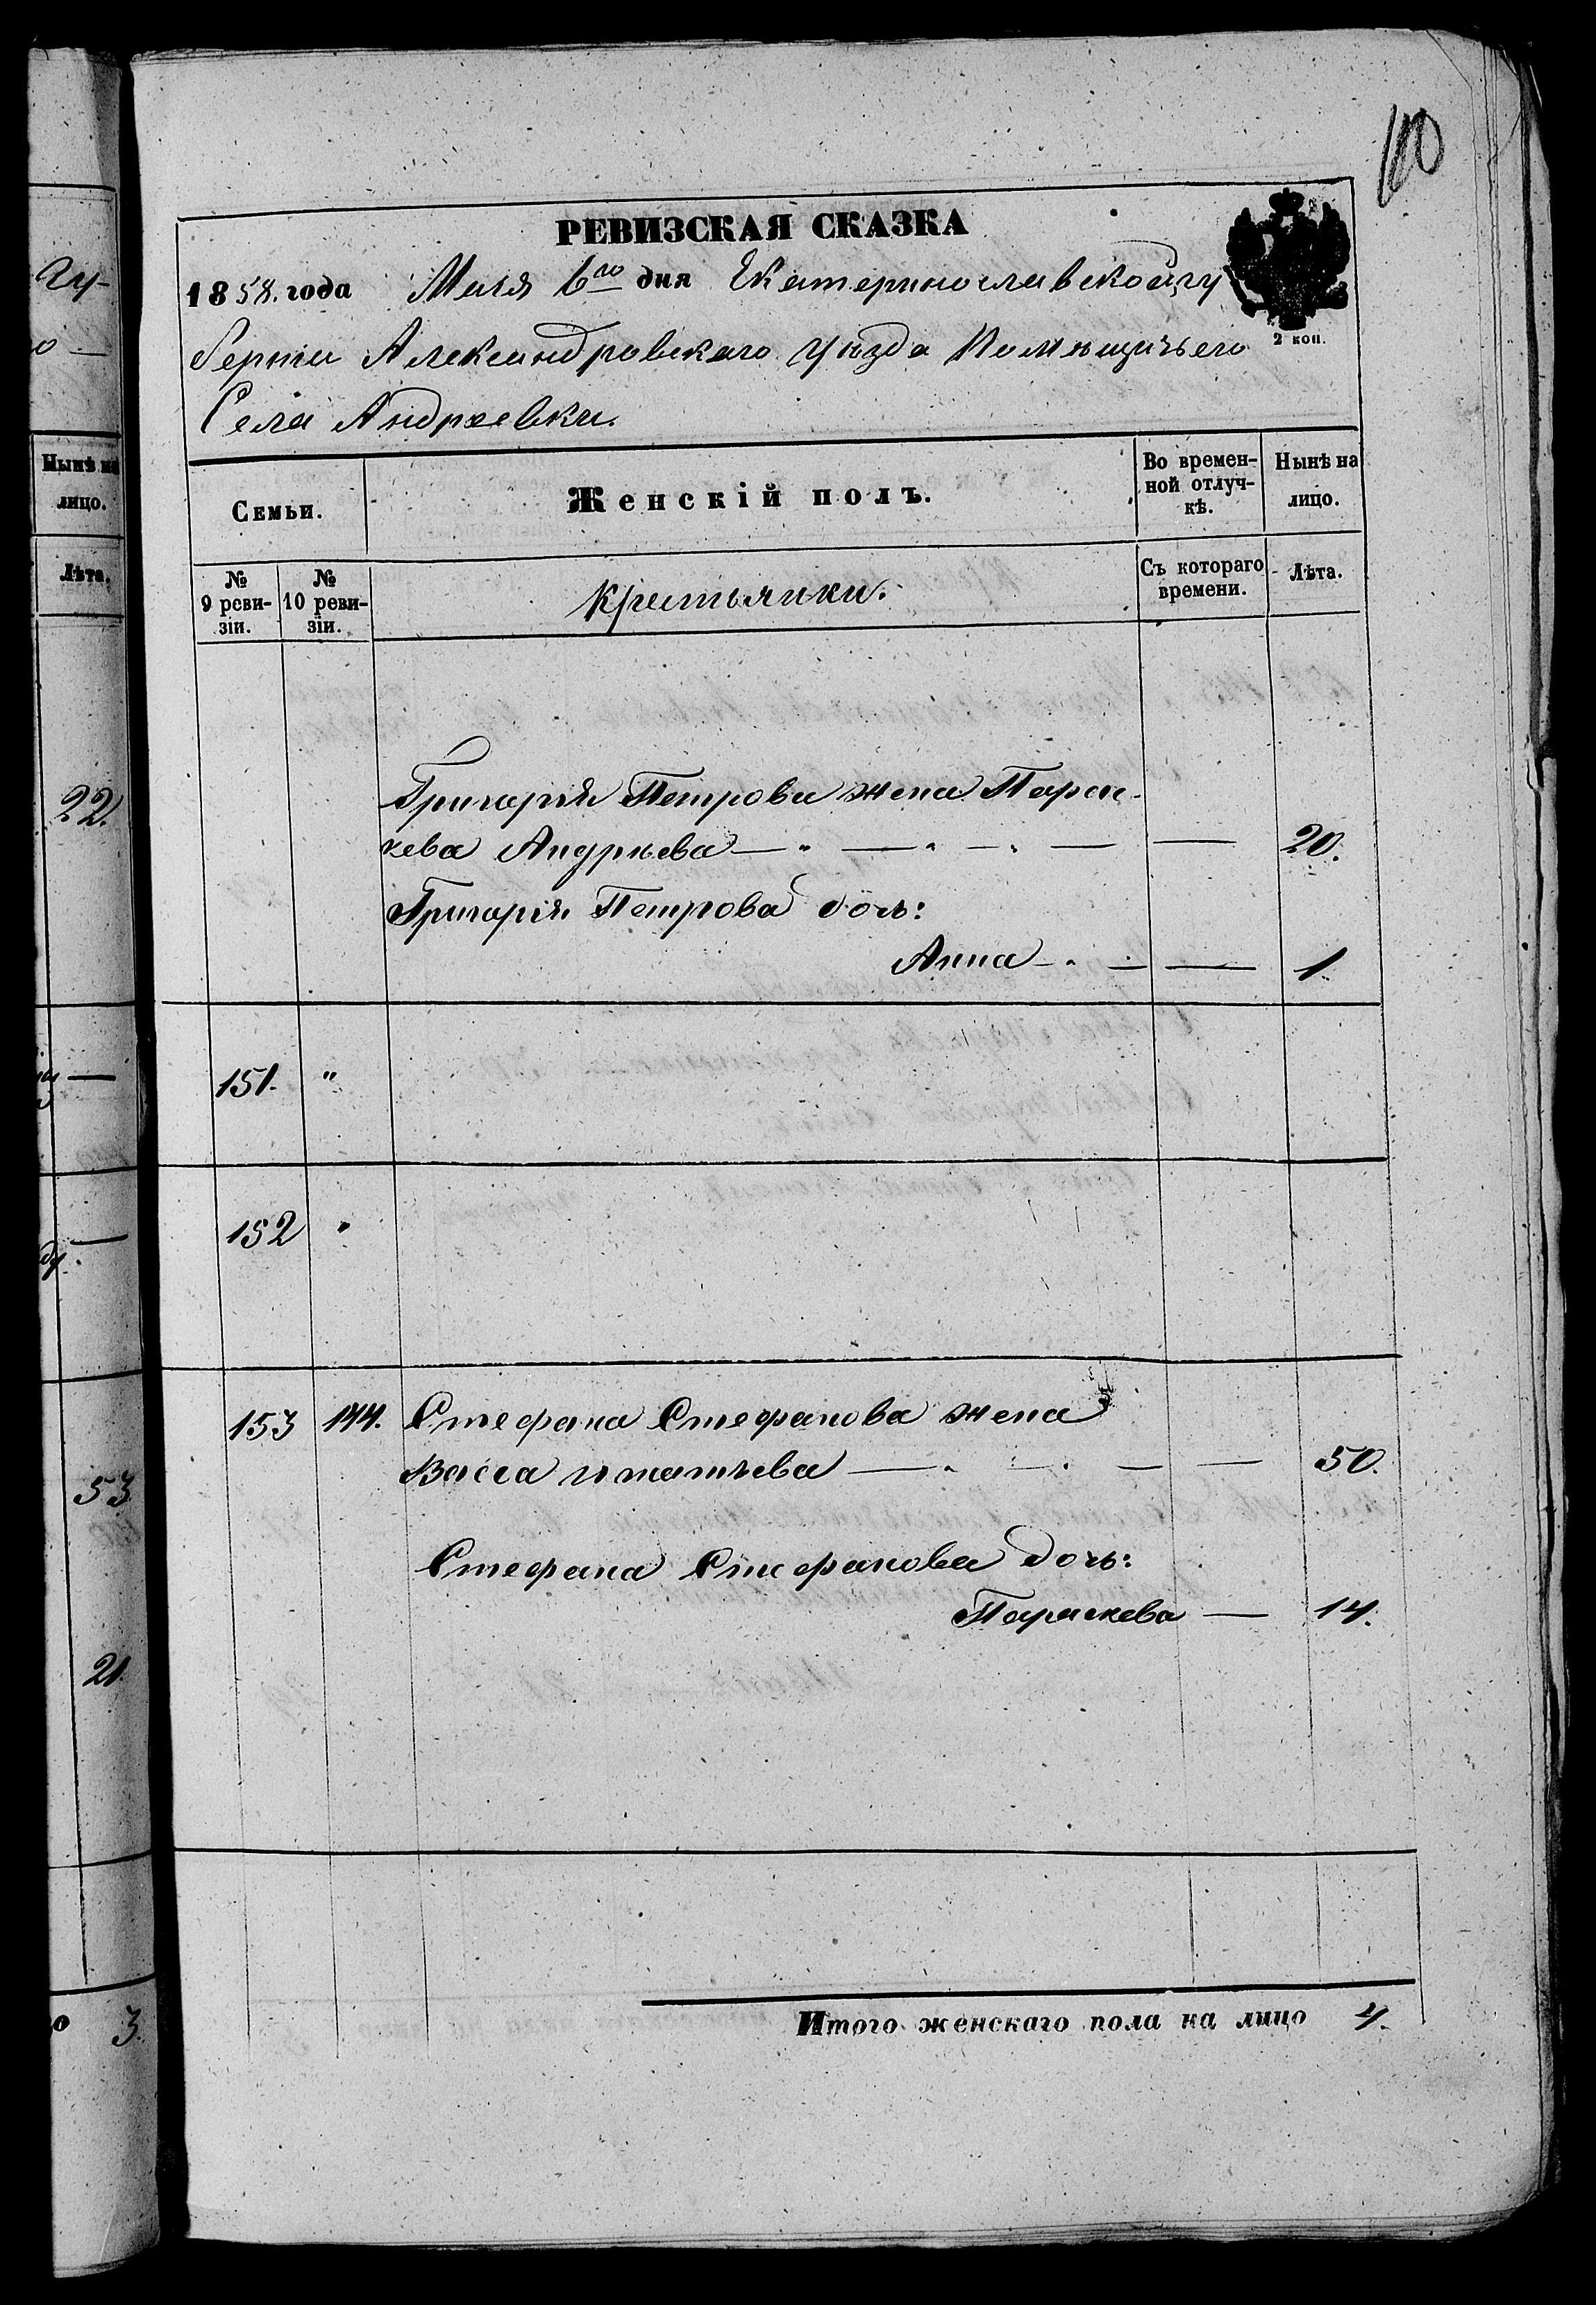 110
РЕВИЗСКАЯ СКАЗКА
1858. года Маія 6го дня Екатеринославской гу
берніи Александровскаго уѣзда Помѣщичьего
2 коп.
Села Андреевки.
Семьи.
Женскій полъ.
Во времен-
ной отлуч-
кѣ.
Нынѣ на
лицо.
№
9 реви-
зіи.
№
10 реви-
зіи.
Крестьянки.
Съ котораго
времени.
Лѣта.
Григорія Петрова жена Парас-
кева Андрѣева — 20.
Григорія Петрова дочь:
Анна — 1
151. "
152 "
153 144. Стефана Стефанова жена
Васса Игнатьева — 50.
Стефана Стефанова дочь:
Параскева — 14.
Итого женскаго пола на лицо 4.
гу-
Нынѣ на
лицо.
Лѣта.
22.
53
21.
3.